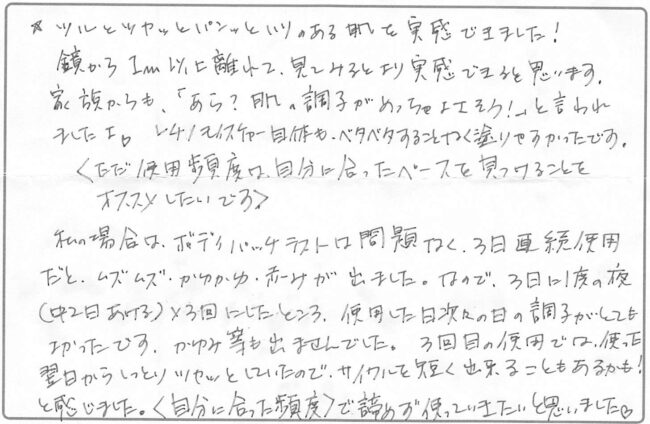 * ツルッとツヤッとパンッとハリのある肌を実感できました!
鏡から1m以上離れて、見てみるとより実感できると思います。
家族からも、「あら?肌の調子がめっちゃよさそう!」と言われ
ましたよ♡ レチノモイスチャー自体も、ベタベタすることなく塗りやすかったです。
<ただ使用頻度は、自分に合ったペースを見つけることを
オススメしたいです>
私の場合は、ボディパッチテストは問題なく、3日連続使用
だと、ムズムズ・かゆかゆ・赤みが出ました。なので、3日に1度の夜
(中2日あける)×3回にしたところ、使用した日次々の日の調子がとても
よかったです。かゆみ等も出ませんでした。3回目の使用では、使った
翌日からしっとりツヤッとしていたので、サイクルを短く出来ることもあるかも!
と感じました。<自分に合った頻度>で諦めず使っていきたいと思いました♡